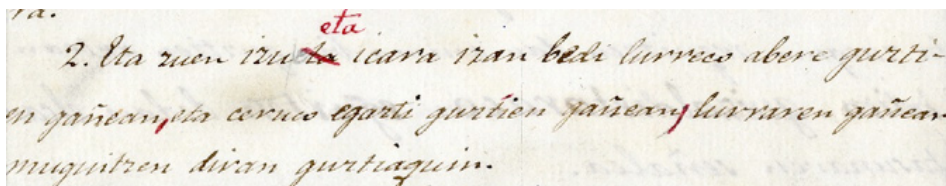 ra.
eta
2. Eta zuen izueta icara izan bedi lurreco abere guzti-
en gañean, eta ceruco egazti guztien gañean, lurraren gañean
muguitzen diran guztiaquin.